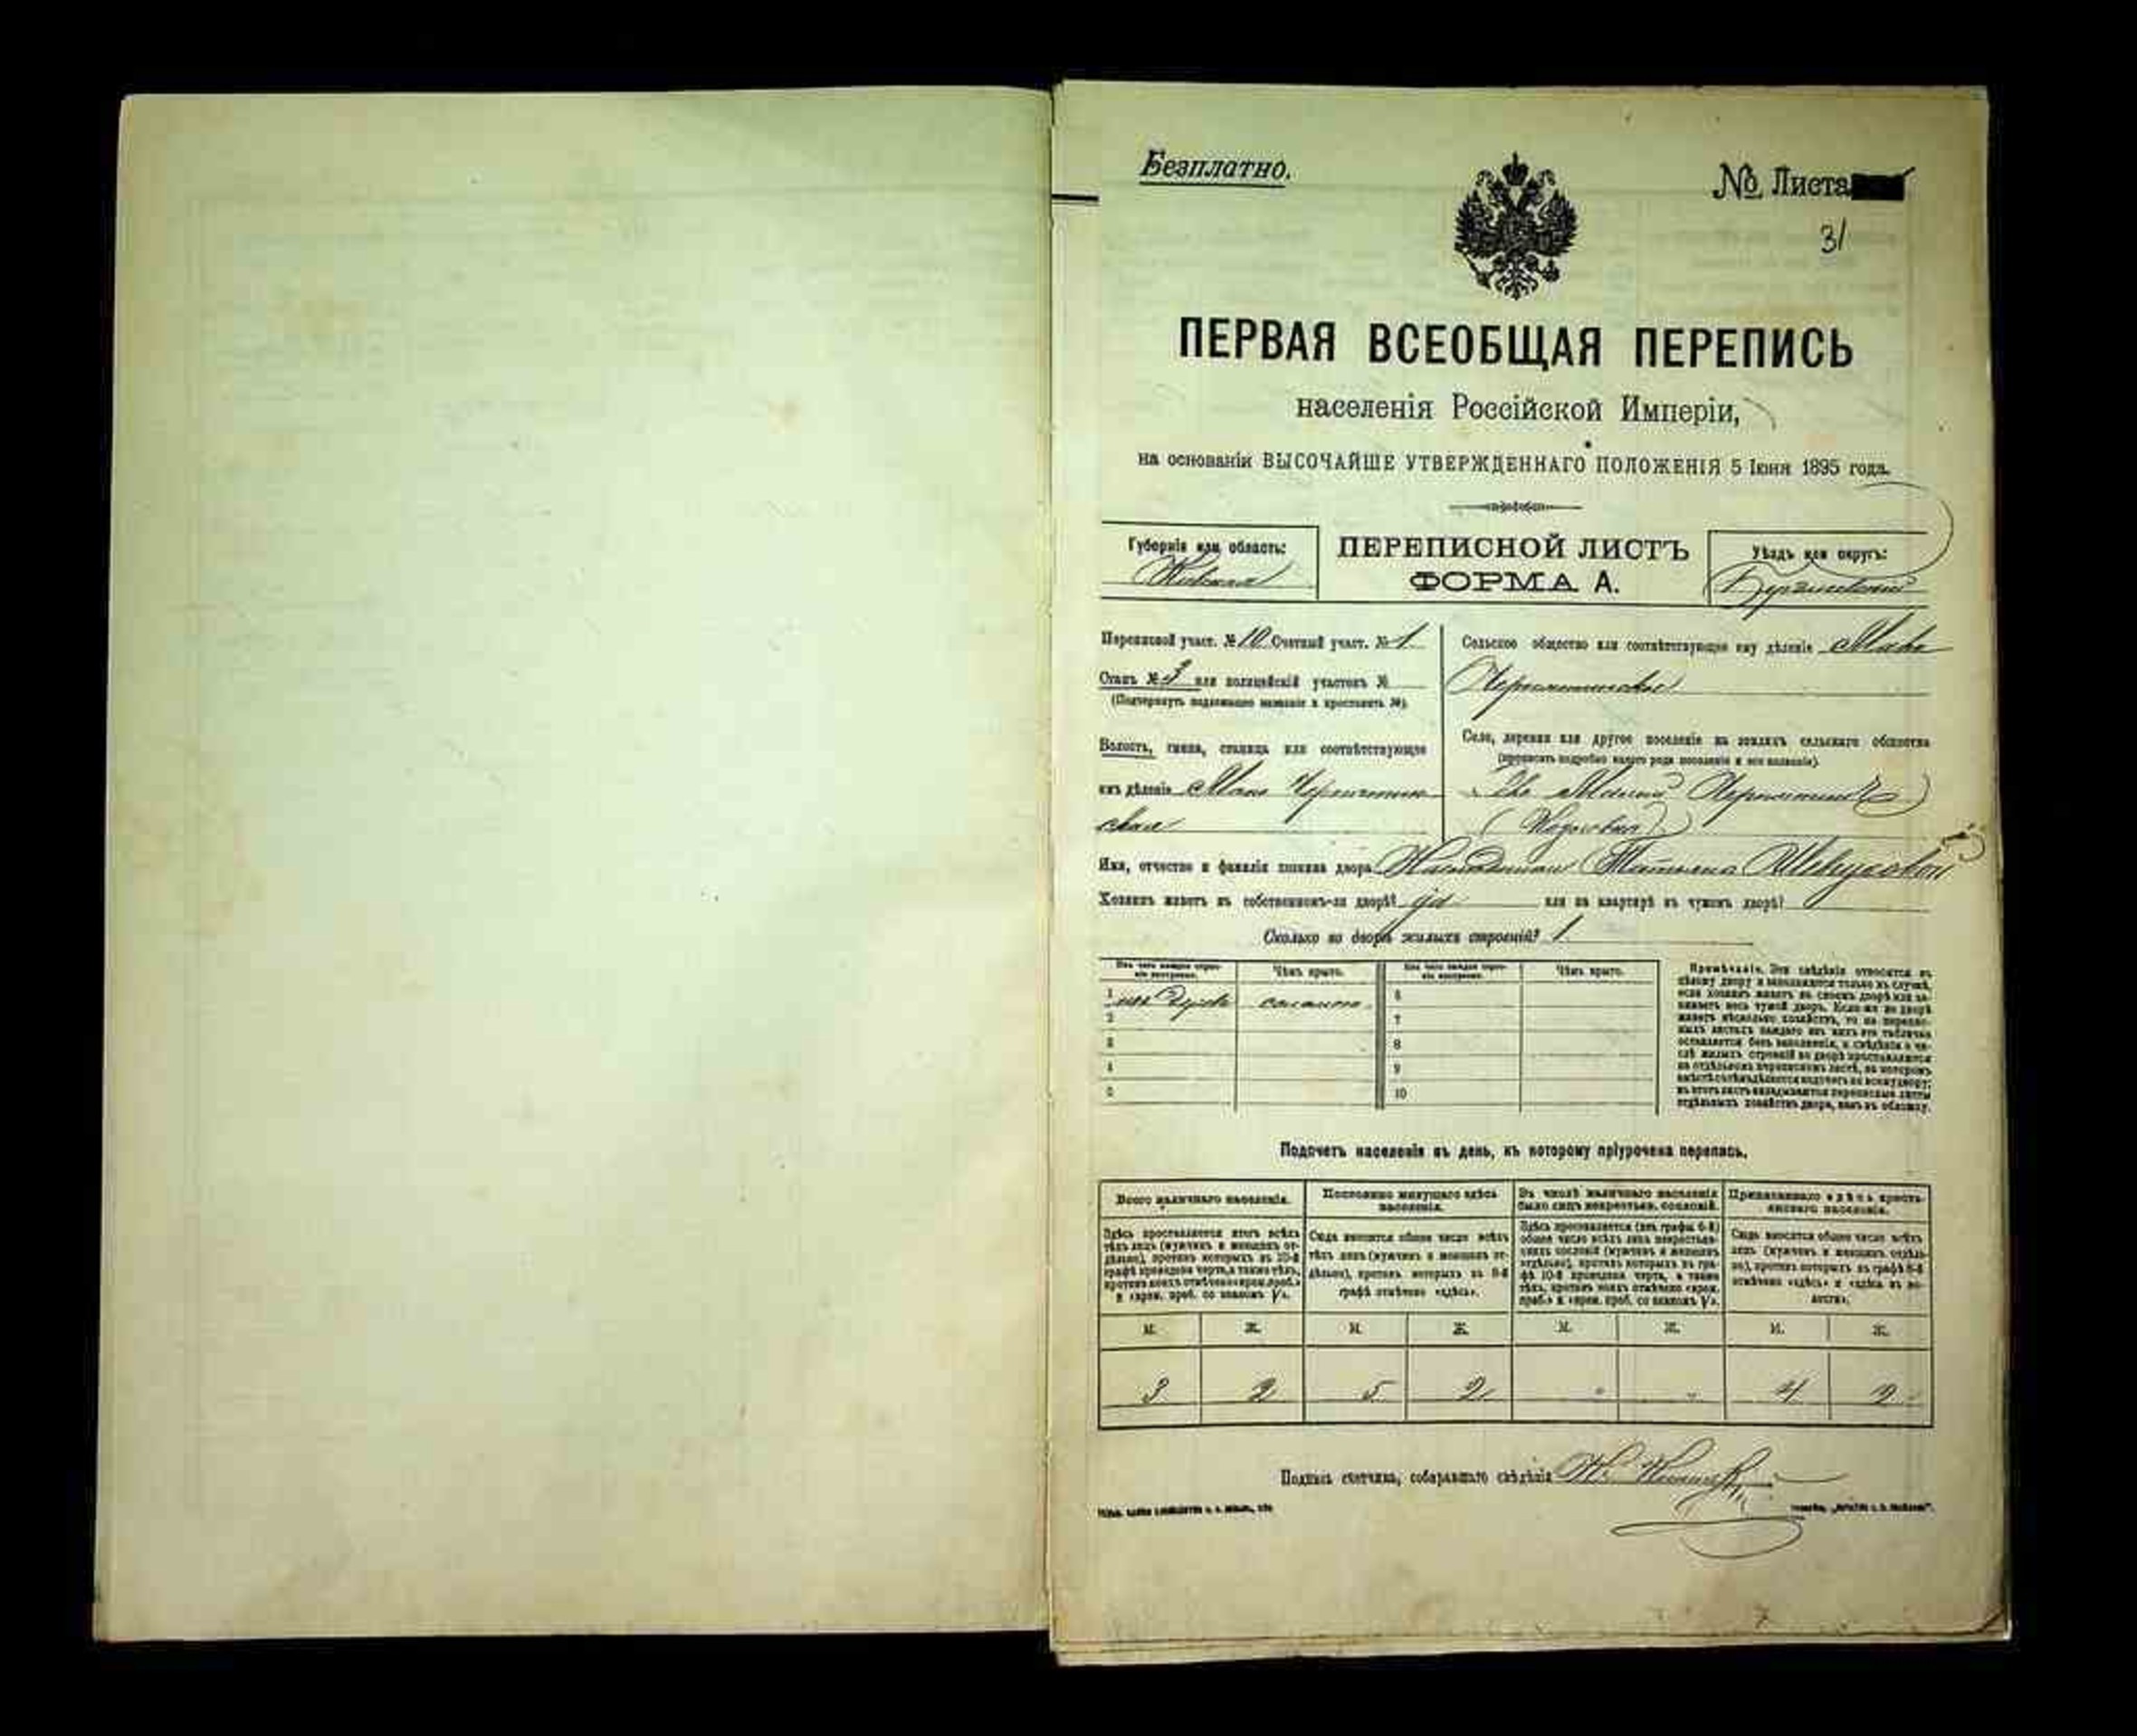 Безплатно.
№ Листа
31
ПЕРВАЯ ВСЕОБЩАЯ ПЕРЕПИСЬ
населенія Россійской Имперіи,
на основаніи ВЫСОЧАЙШЕ УТВЕРЖДЕННАГО ПОЛОЖЕНІЯ 5 Іюня 1895 года.
Губернія или область:
Кіевская
ПЕРЕПИСНОЙ ЛИСТЪ
ФОРМА А.
Уѣздъ или округъ:
Переписной участ. № 10 Счетный участ. № 1
Станъ № 3 или полицейскій участокъ №
(Подчеркнуть надлежащее названіе и проставить №).
Волость, гмина, станица или соотвѣтствующее
имъ дѣленіе Мало
ская
Сельское общество или соотвѣтствующее ему дѣленіе Мало
Село, деревня или другое поселеніе на земляхъ сельскаго общества
(прописать подробно какого рода поселеніе и его названіе).
Имя, отчество и фамилія хозяина двора Татьяна
Хозяинъ живетъ въ собственномъ-ли дворѣ? да или на квартирѣ въ чужомъ дворѣ?
Сколько во дворѣ жилыхъ строеній? 1
Изъ чего каждое строеніе построено.
Чѣмъ крыто.
Изъ чего каждое строеніе построено.
Чѣмъ крыто.
1 изъ дерева соломою
6
2
7
3
8
4
9
5
10
Примѣчаніе. Эти свѣдѣнія относятся къ
цѣлому двору и заполняются только въ случаѣ,
если хозяинъ живетъ въ своемъ дворѣ или за-
нимаетъ весь чужой дворъ. Если же во дворѣ
живетъ нѣсколько хозяйствъ, то на перепис-
ныхъ листахъ каждаго изъ нихъ эта табличка
оставляется безъ заполненія, а свѣдѣнія о чи-
слѣ жилыхъ строеній во дворѣ проставляются
на отдѣльномъ переписномъ листѣ, на которомъ
вмѣстѣ съ тѣмъ дѣлается подсчетъ по всему двору;
въ этотъ листъ вкладываются переписные листы
отдѣльныхъ хозяйствъ двора, какъ въ обложку.
Подсчетъ населенія въ день, къ которому пріурочена перепись.
Всего наличнаго населенія.
Постоянно живущаго здѣсь
населенія.
Въ числѣ наличнаго населенія
было лицъ некрестьян. сословій.
Приписаннаго здѣсь кресть-
янскаго населенія.
Здѣсь проставляется итогъ всѣхъ
тѣхъ лицъ (мужчинъ и женщинъ от-
дѣльно), противъ которыхъ въ 10-й
графѣ проведена черта, а также тѣхъ,
противъ коихъ отмѣчено «врем. проб.»
и «врем. преб. со знакомъ V».
Сюда вносится общее число всѣхъ
тѣхъ лицъ (мужчинъ и женщинъ от-
дѣльно), противъ которыхъ въ 9-й
графѣ отмѣчено «здѣсь».
Здѣсь проставляется (изъ графы 6-й)
общее число всѣхъ лицъ некрестьян-
скихъ сословій (мужчинъ и женщинъ
отдѣльно), противъ которыхъ въ гра-
фѣ 10-й проведена черта, а также
тѣхъ, противъ коихъ отмѣчено «врем.
преб.» и «врем. преб. со знакомъ V».
Сюда вносится общее число всѣхъ
лицъ (мужчинъ и женщинъ отдѣль-
но), противъ которыхъ въ графѣ 8-й
отмѣчено «здѣсь» и «здѣсь въ во-
лости».
М. Ж. М. Ж. М. Ж. М. Ж.
3 2 5 2 " " 4 2
Подпись счетчика, собиравшаго свѣдѣнія